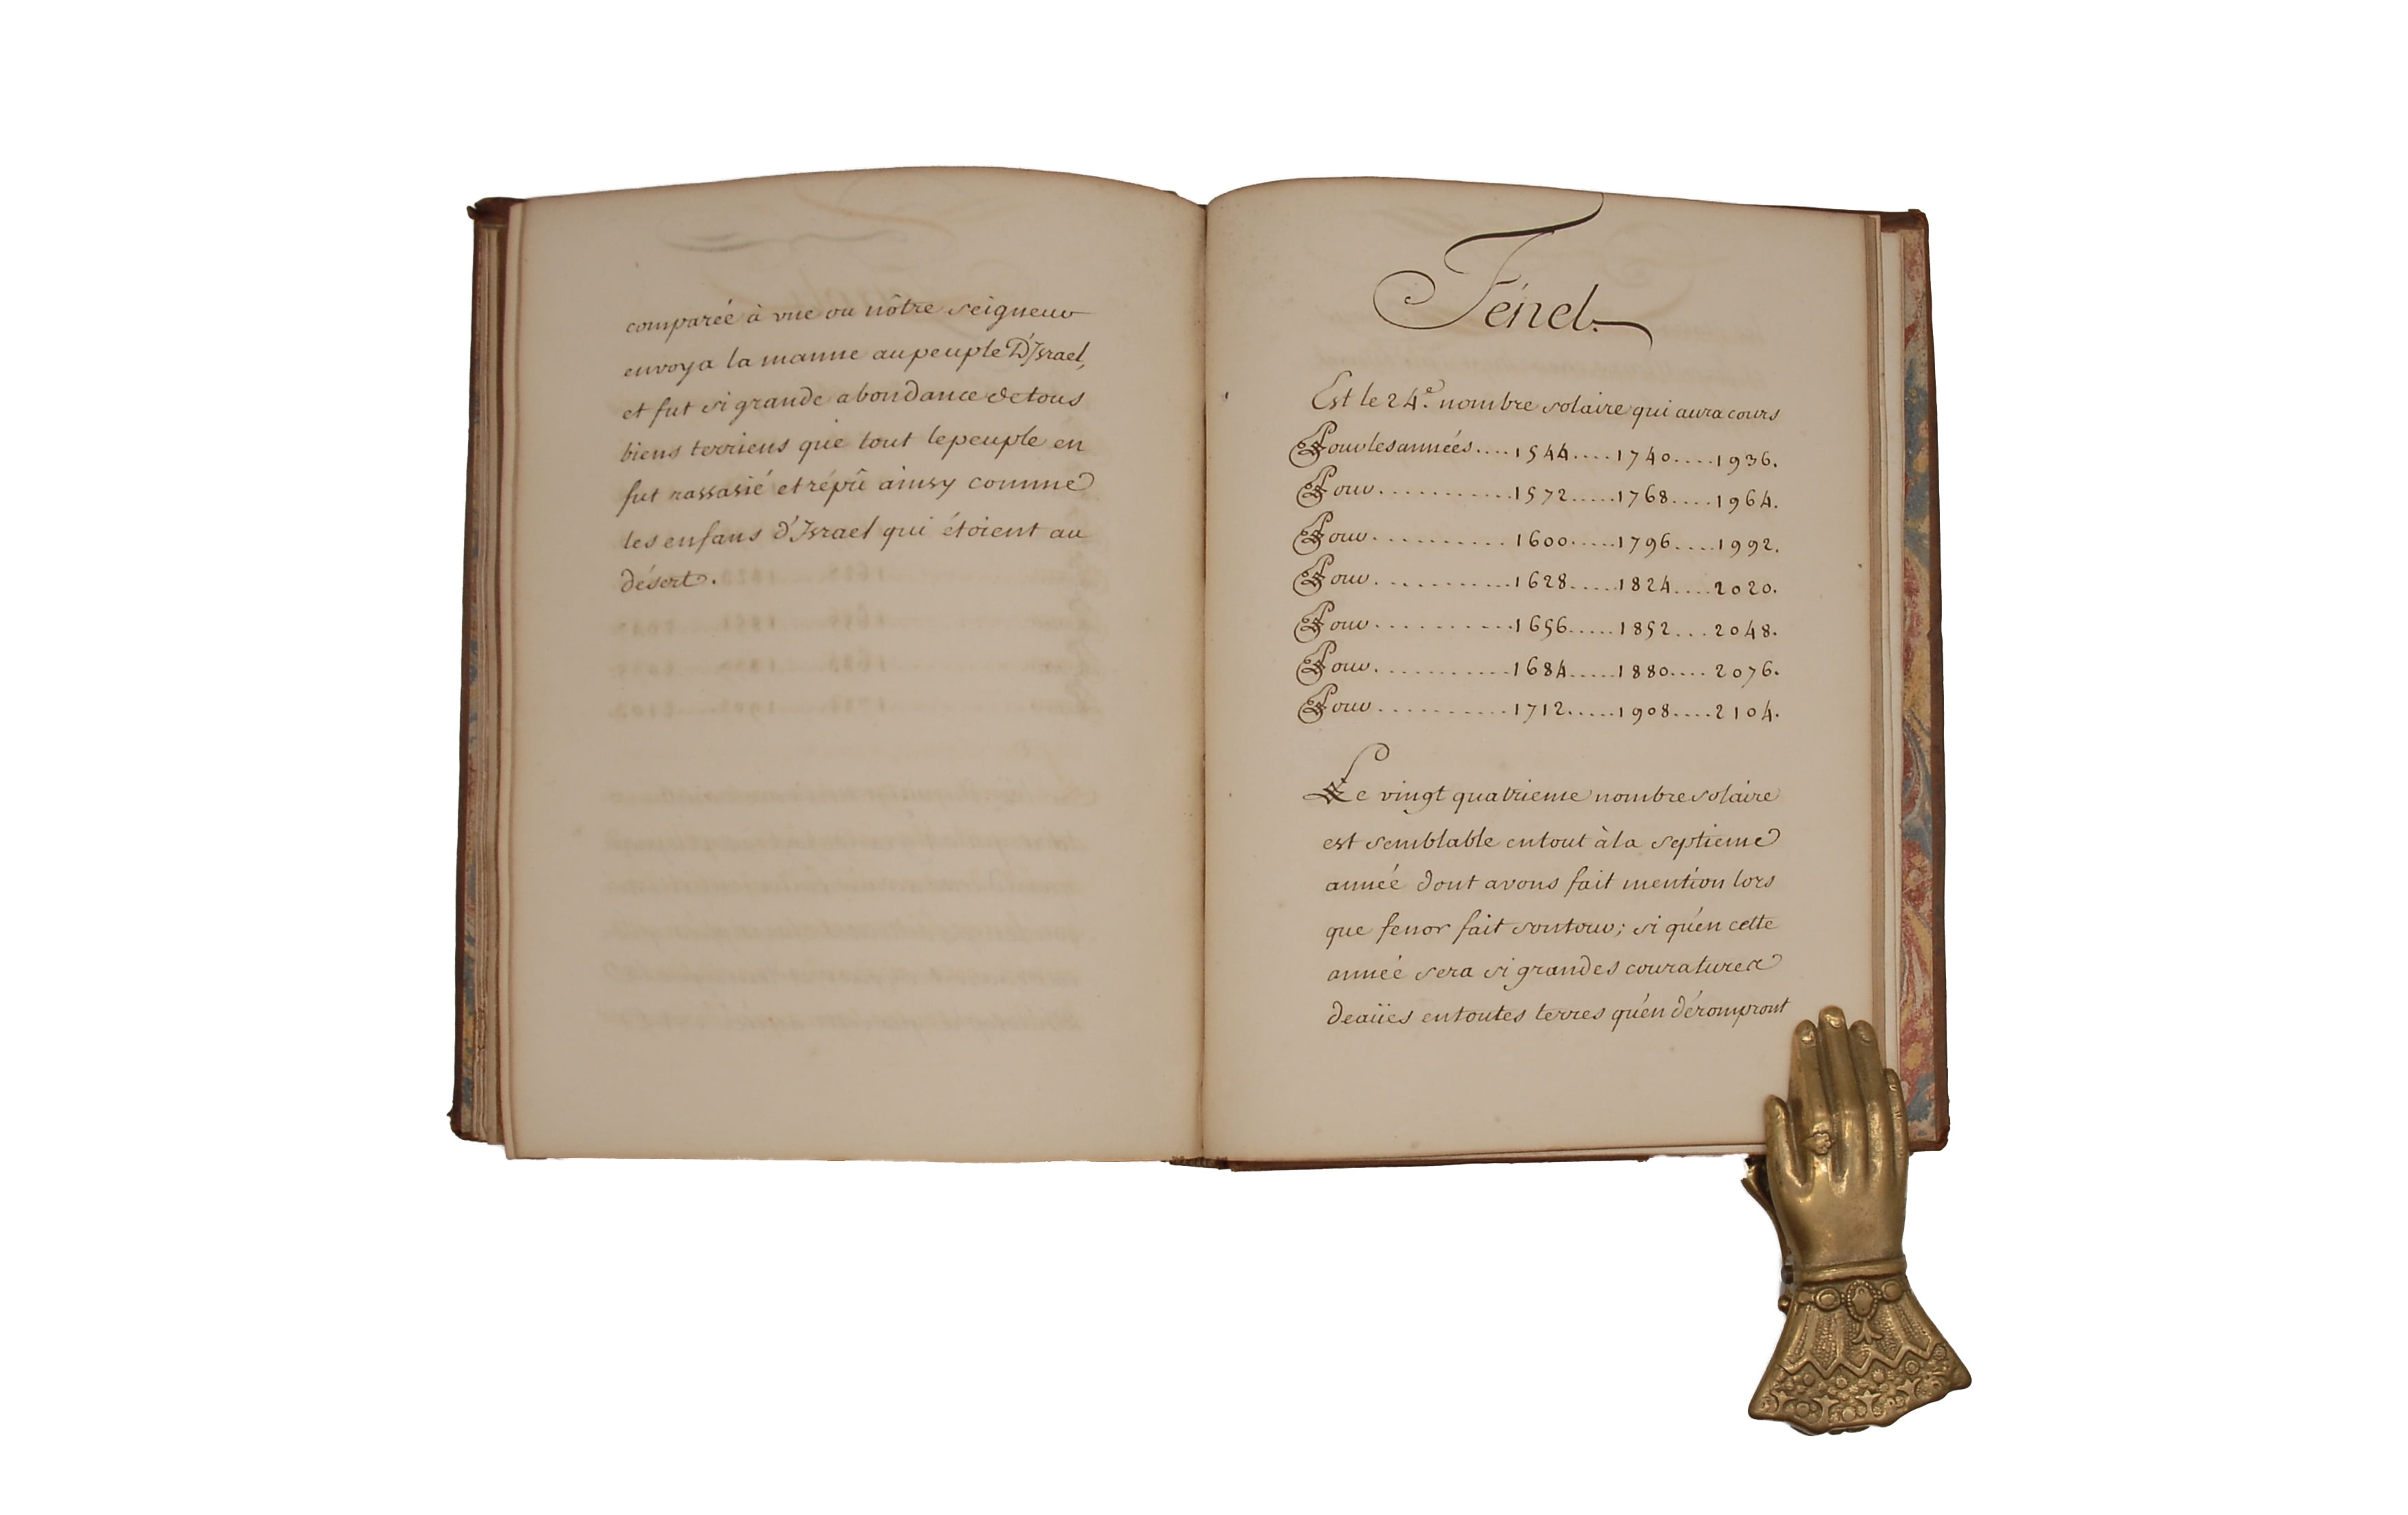 comparée à vne ou nôtre seigneur
envoya la manne au peuple D'Israel,
et fut si grande abondance de tous
biens terriens que tout le peuple en
fut rassasié et répû ainsy comme
les enfans d'Israel qui étoient au
désert.
Fénel.
Est le 24.e nombre solaire qui aura cours
Pour les années....1544....1740....1936.
Pour...........1572.....1768....1964.
Pour...........1600.....1796....1992.
Pour...........1628.....1824....2020.
Pour...........1656.....1852...2048.
Pour...........1684.....1880....2076.
Pour...........1712.....1908....2104.
Le vingt quatrieme nombre solaire
est semblable en tout à la septieme
année dont avons fait mention lors
que fenor fait son tour; si qu'en cette
année sera si grandes couratures
deaües en toutes terres qu'en dérompront